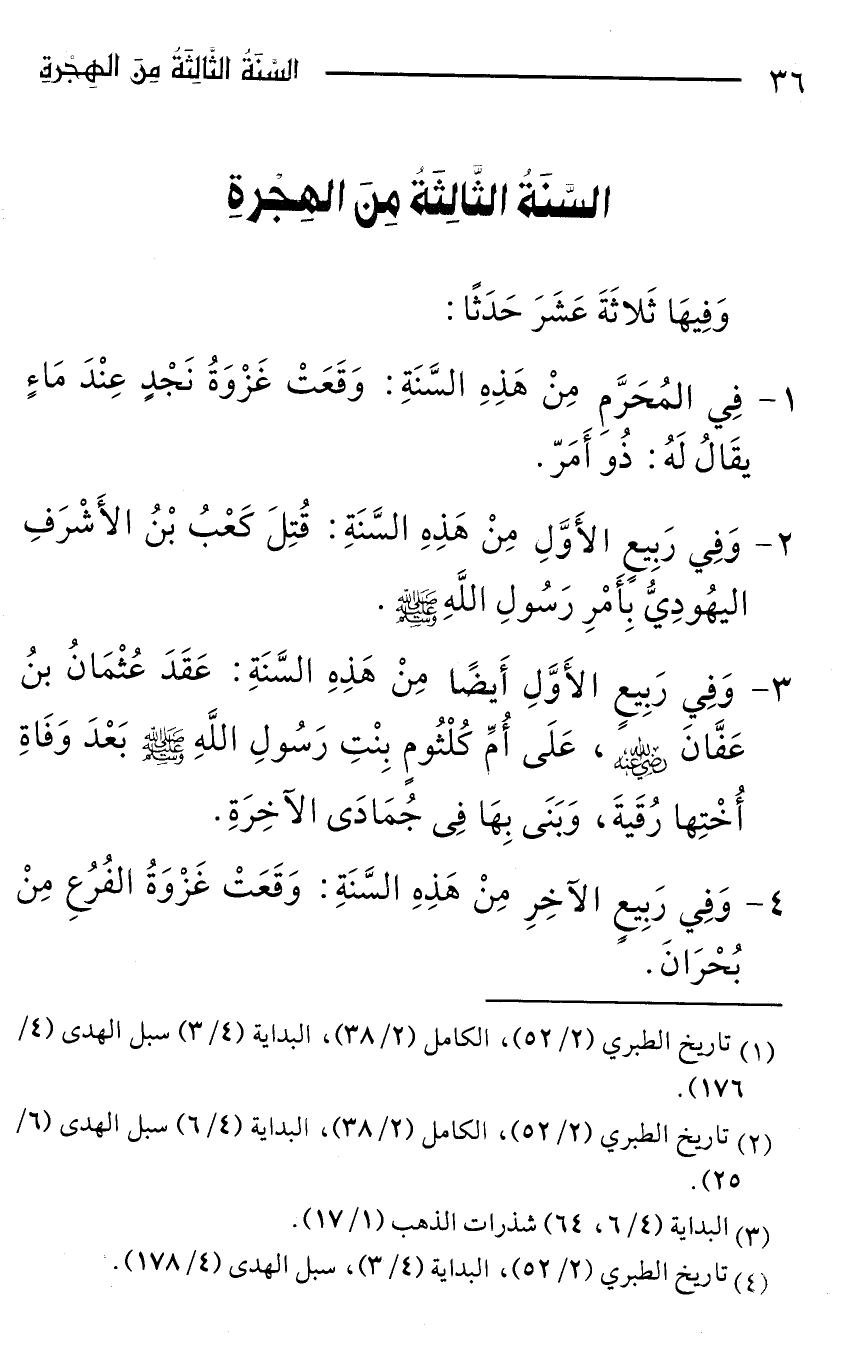 ٣٦ السَّنَةُ الثَّالِثَةُ مِنَ الهِجْرةِ
السَّنَةُ الثَّالِثَةُ مِنَ الهِجْرةِ
وَفِيهَا ثَلاثَةَ عَشَرَ حَدَثًا:
١- فِي المُحَرَّمِ مِنْ هَذِهِ السَّنَةِ: وَقَعَتْ غَزْوَةُ نَجْدٍ عِنْدَ مَاءٍ
يقَالُ لَهُ: ذُو أَمَرّ.
٢- وَفِي رَبِيعٍ الأَوَّلِ مِنْ هَذِهِ السَّنَةِ: قُتِلَ كَعْبُ بْنُ الأَشْرَفِ
اليهُودِيُّ بِأَمْرِ رَسُولِ اللَّهِ ﷺ.
٣- وَفِي رَبِيعٍ الأَوَّلِ أَيضًا مِنْ هَذِهِ السَّنَةِ: عَقَدَ عُثْمَانُ بنُ
عَفَّانَ رضي الله عنه، عَلَى أُمِّ كُلْثُومٍ بِنْتِ رَسُولِ اللَّهِ ﷺ بَعْدَ وَفَاةِ
أُخْتِها رُقَيةَ، وَبَنَى بِهَا فِى جُمَادَى الآخِرَةِ.
٤- وَفِي رَبِيعٍ الآخِرِ مِنْ هَذِهِ السَّنَةِ: وَقَعَتْ غَزْوَةُ الفُرُعِ مِنْ
بُحْرَانَ.
(١) تاريخ الطبري (٢/ ٥٢)، الكامل (٢/ ٣٨)، البداية (٤/ ٣) سبل الهدى (٤/
١٧٦).
(٢) تاريخ الطبري (٢/ ٥٢)، الكامل (٢/ ٣٨)، البداية (٤/ ٦) سبل الهدى (٦/
٢٥).
(٣) البداية (٤/ ٦، ٦٤) شذرات الذهب (١/ ١٧).
(٤) تاريخ الطبري (٢/ ٥٢)، البداية (٤/ ٣)، سبل الهدى (٤/ ١٧٨).